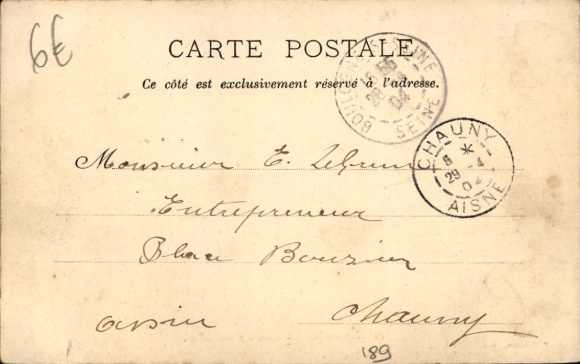 6€
CARTE POSTALE
Ce côté est exclusivement réservé à l'adresse.
BOULOGNE-S-SEINE
28 -4
04
SEINE
CHAUNY
8 *
29 -4
04
AISNE
Monsieur E.
Entrepreneur
Place Bouzier
Chauny
189